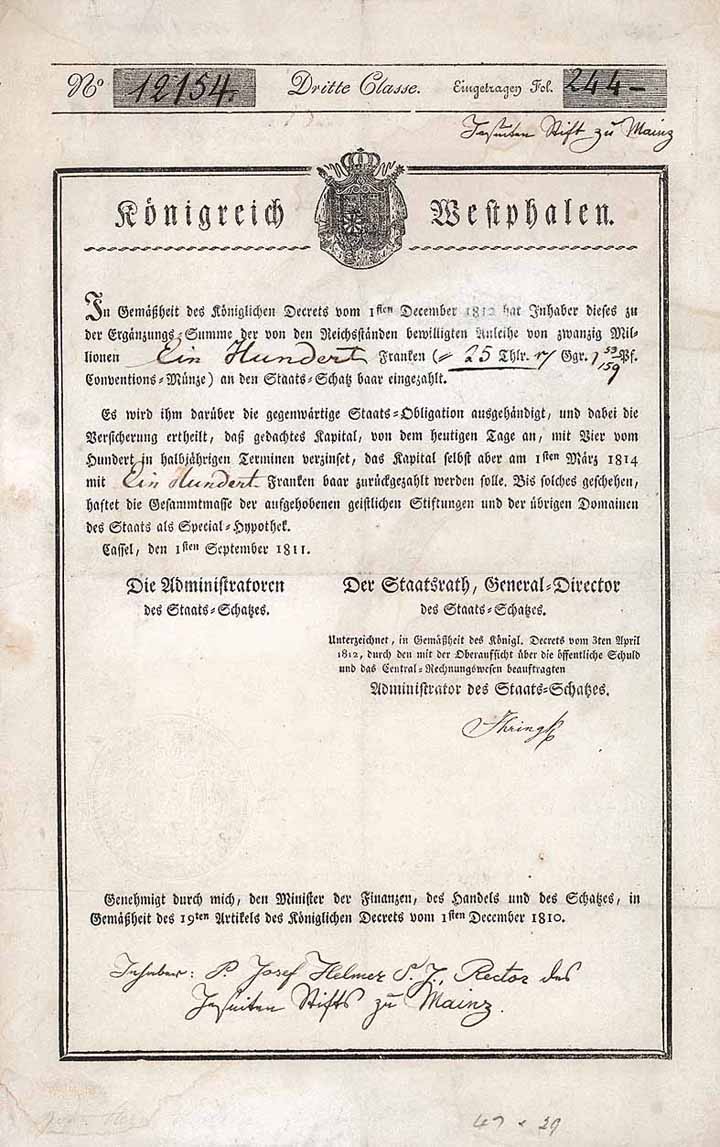 No 12154. Dritte Classe. Eingetragen Fol. 244-
Jesuiten Stift zu Mainz
Königreich Westphalen.
In Gemäßheit des Königlichen Decrets vom 1sten December 1812 hat Inhaber dieses zu
der Ergänzungs-Summe der von den Reichsständen bewilligten Anleihe von zwanzig Mil-
lionen Ein Hundert Franken (25 Thlr. Ggr. 1 53/159 Pf.
Conventions-Münze) an den Staats-Schatz baar eingezahlt.
Es wird ihm darüber die gegenwärtige Staats-Obligation ausgehändigt, und dabei die
Versicherung ertheilt, daß gedachtes Kapital, von dem heutigen Tage an, mit Vier vom
Hundert in halbjährigen Terminen verzinset, das Kapital selbst aber am 1sten März 1814
mit Ein Hundert Franken baar zurückgezahlt werden solle. Bis solches geschehen,
haftet die Gesammtmasse der aufgehobenen geistlichen Stiftungen und der übrigen Domainen
des Staats als Special-Hypothek.
Cassel, den 1sten September 1811.
Die Administratoren
des Staats-Schatzes.
Der Staatsrath, General-Director
des Staats-Schatzes.
Unterzeichnet, in Gemäßheit des Königl. Decrets vom 3ten April
1812, durch den mit der Oberaufsicht über die öffentliche Schuld
und das Central-Rechnungswesen beauftragten
Administrator des Staats-Schatzes.
Genehmigt durch mich, den Minister der Finanzen, des Handels und des Schatzes, in
Gemäßheit des 19ten Artikels des Königlichen Decrets vom 1sten December 1810.
Inhaber: P. Josef Helmer S. J., Rector des
Jesuiten Stifts zu Mainz.